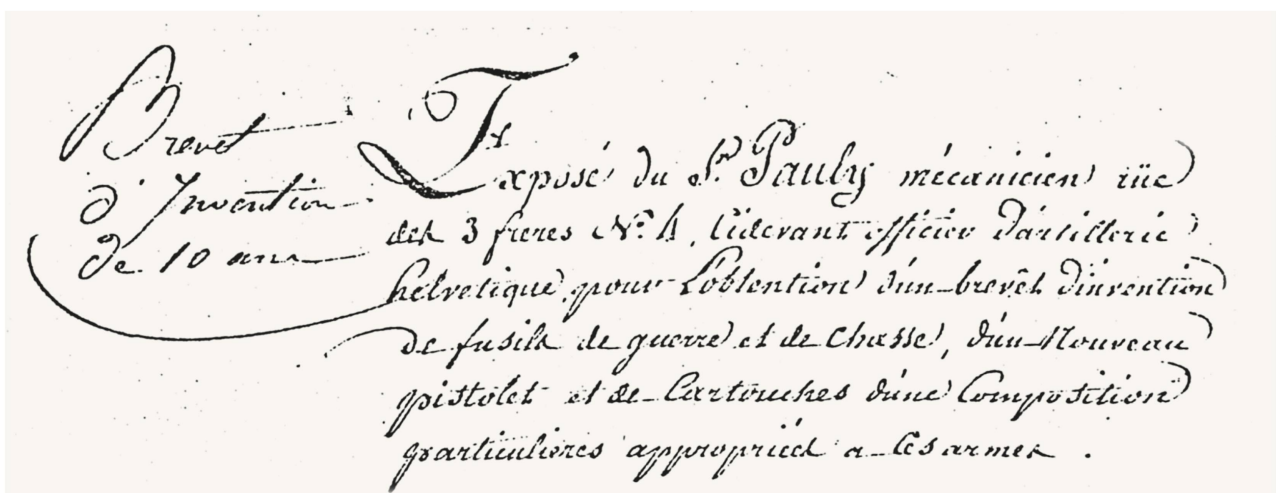 Brevet
d'Invention
de 10 ans
Exposé du Sr. Pauly mécanicien rüe
des 3 freres No. 4, Cidevant officier d'artillerie
helvetique, pour L'obtention d'un brevêt d'invention
de fusils de guerre et de Chasse, d'un Nouveau
pistolet et de Cartouches d'une Composition
particulieres appropriées a Ces armes.